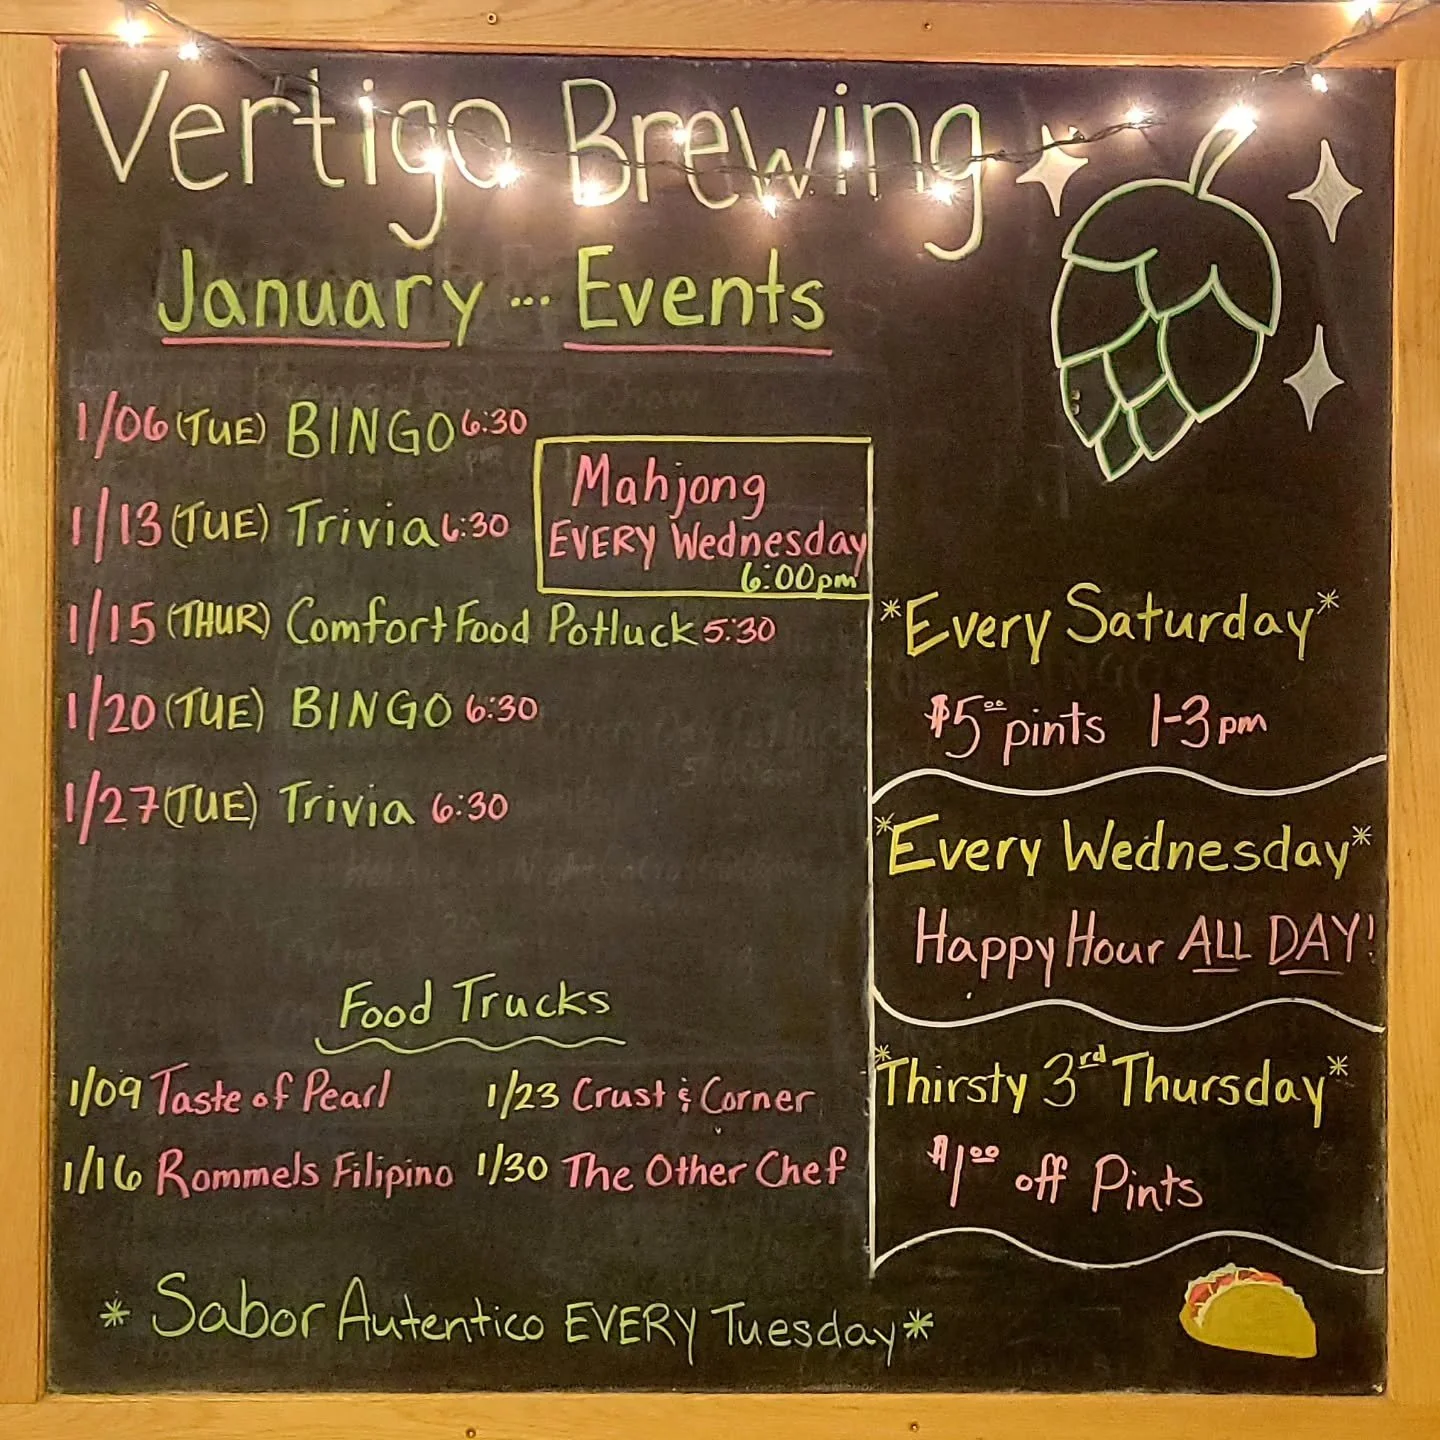 Vertigo Brewing
January ... Events
1/06 (TUE) BINGO 6:30
1/13 (TUE) Trivia 6:30
1/15 (THUR) Comfort Food Potluck 5:30
1/20 (TUE) BINGO 6:30
1/27 (TUE) Trivia 6:30
Mahjong
EVERY Wednesday
6:00pm
Food Trucks
1/09 Taste of Pearl
1/16 Rommels Filipino
1/23 Crust & Corner
1/30 The Other Chef
* Sabor Autentico EVERY Tuesday *
*Every Saturday*
$5.00 pints 1-3pm
*Every Wednesday*
Happy Hour ALL DAY!
*Thirsty 3rd Thursday*
$1.00 off Pints